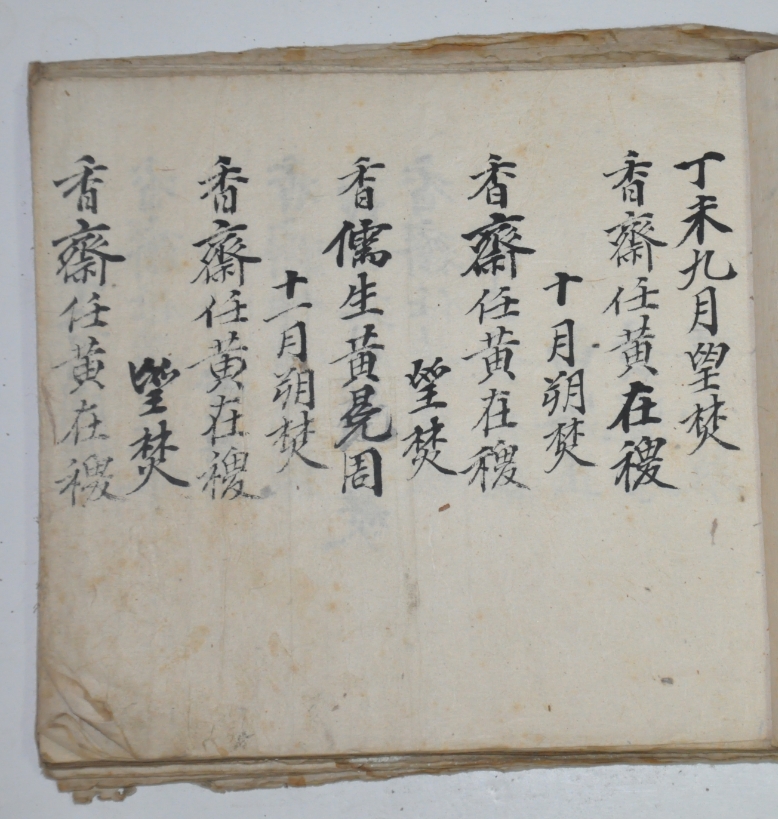 丁未九月望焚
香齋任黃在稷
十月朔焚
香齋任黃在稷
望焚
香儒生黃晃周
十一月朔焚
香齋任黃在稷
望焚
香齋任黃在稷